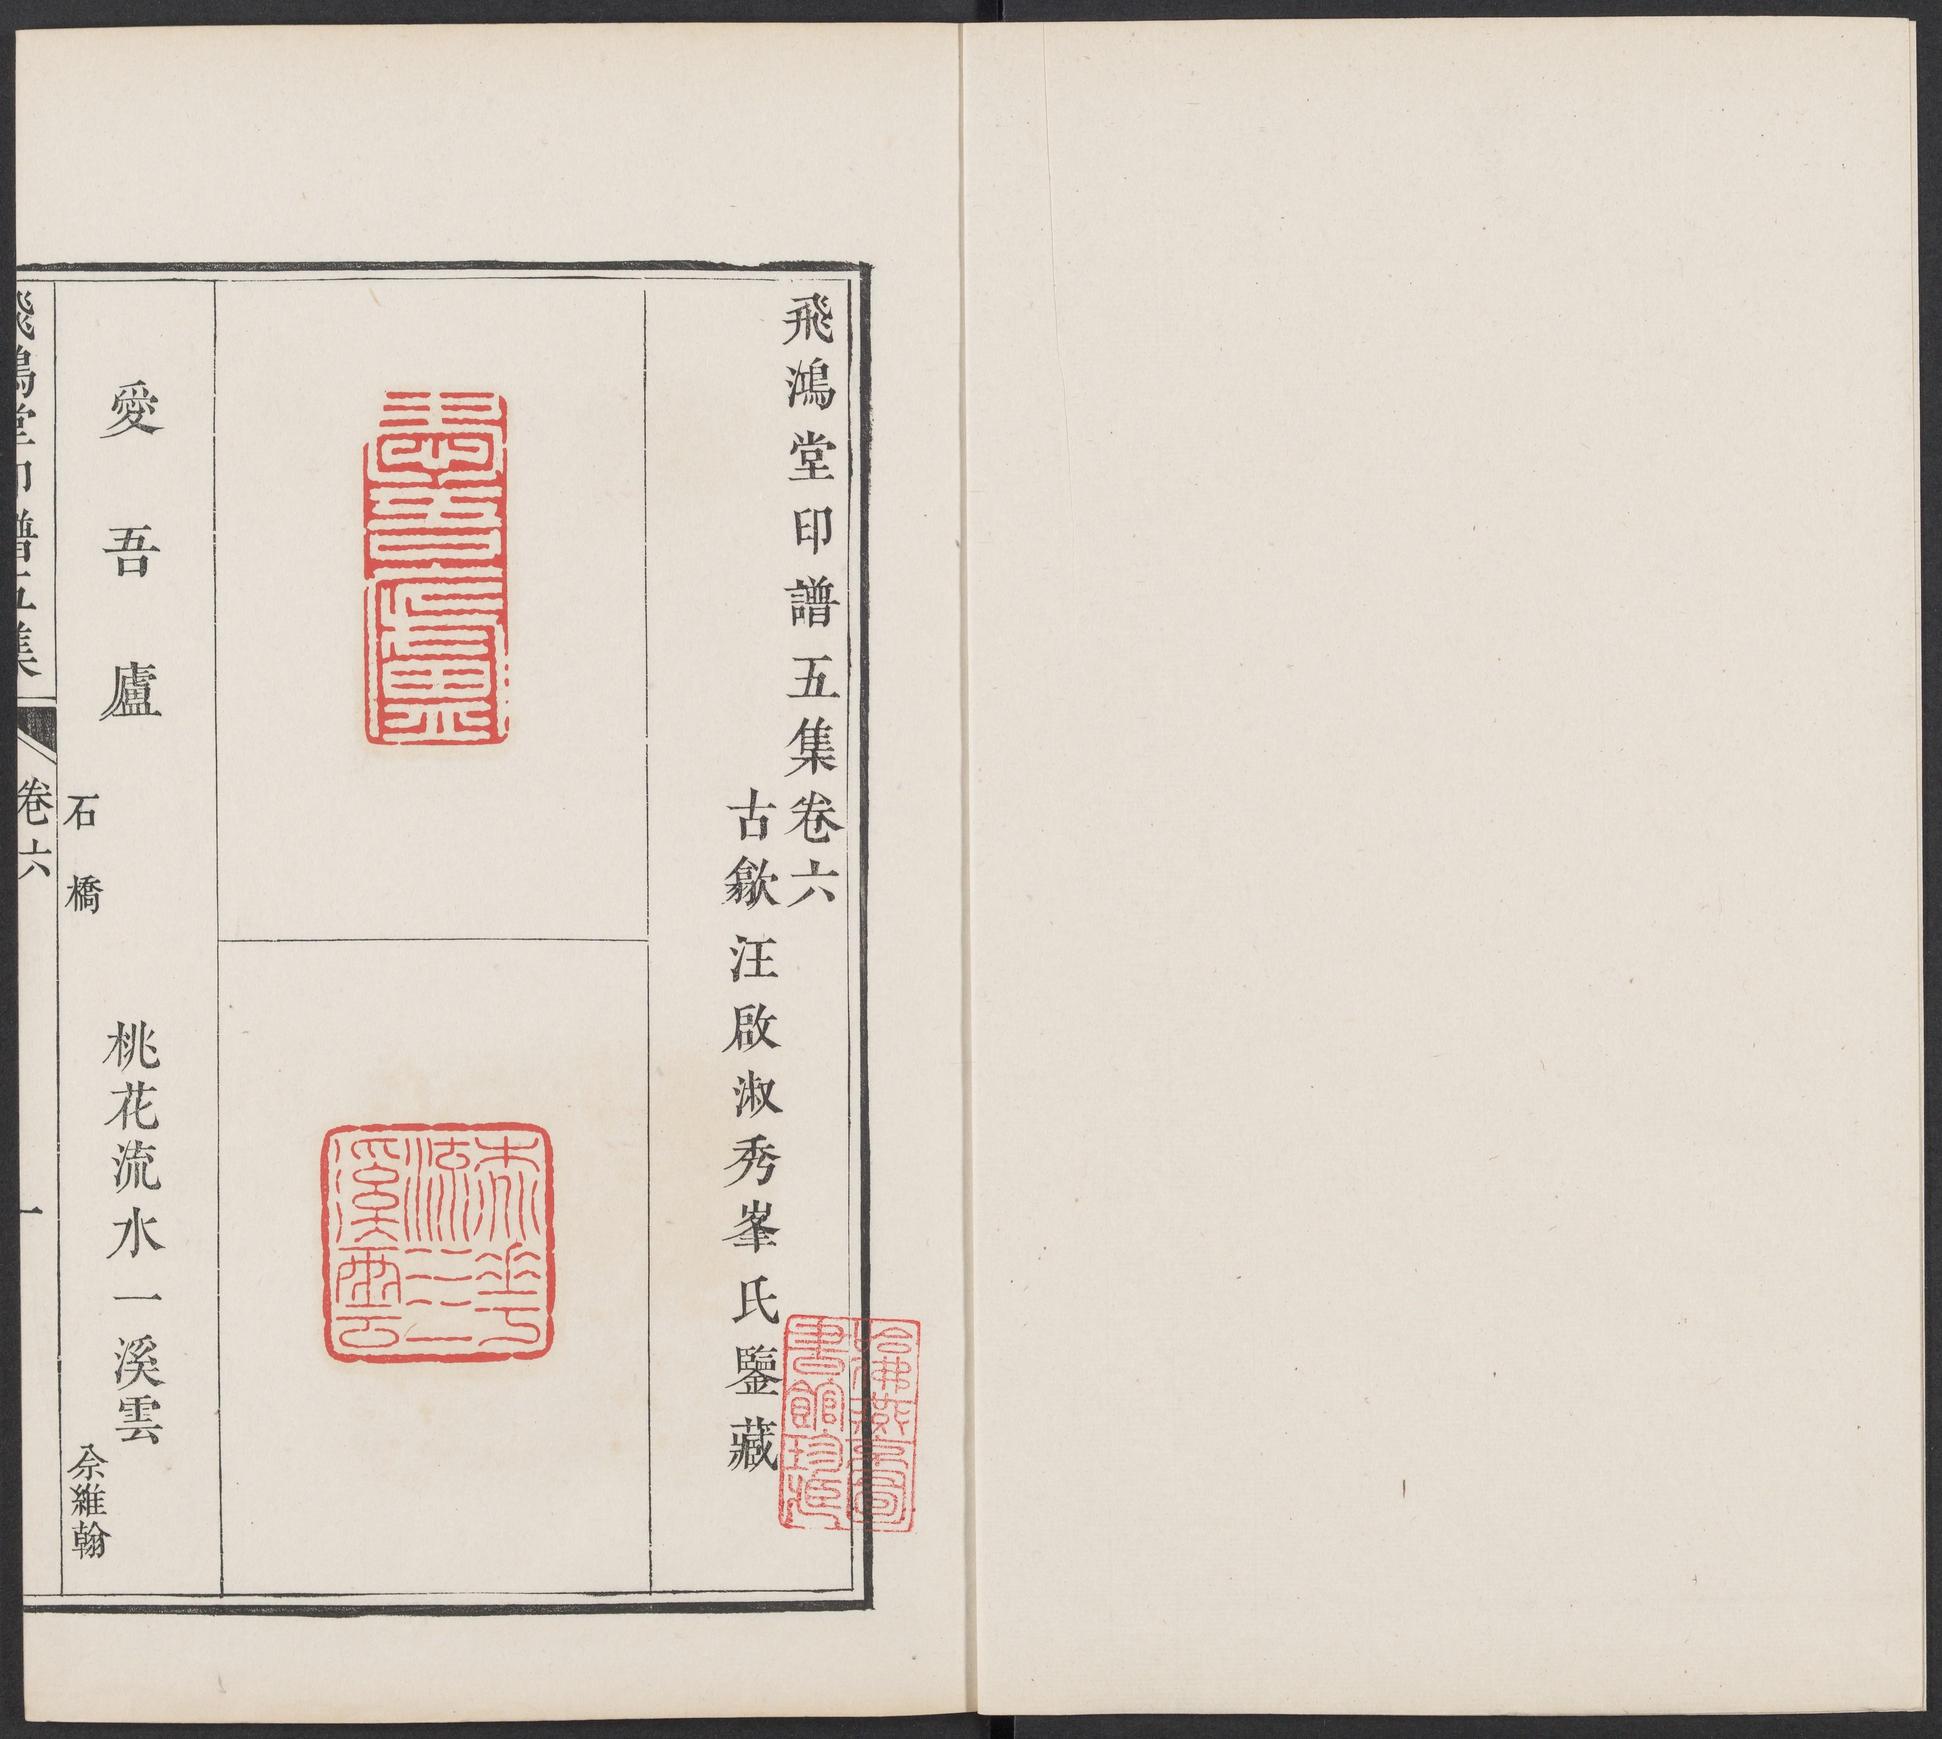 飛鴻堂印譜五集卷六
古歙汪啟淑秀峯氏鑒藏
哈佛燕京圖
書館珍藏
愛吾廬
桃花
流水一
溪雲
愛吾廬
石橋
桃花流水一溪雲
佘維翰
飛鴻堂印譜五集
卷六
一